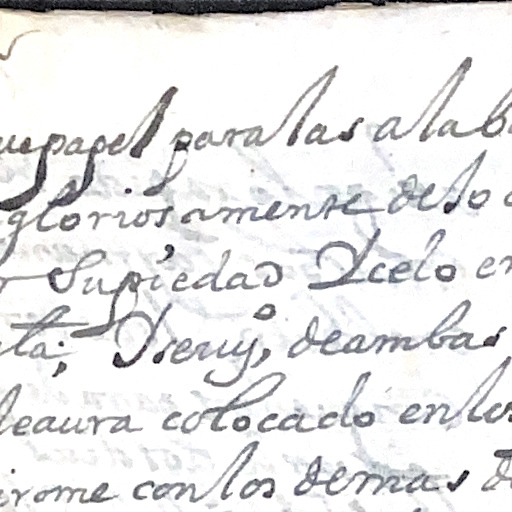 uepapel para las alaba
gloriosamente deso
r Supiedad Icelo en
ta; Iseruj.º deambas
leaura colocado enlos
irome con los demas d